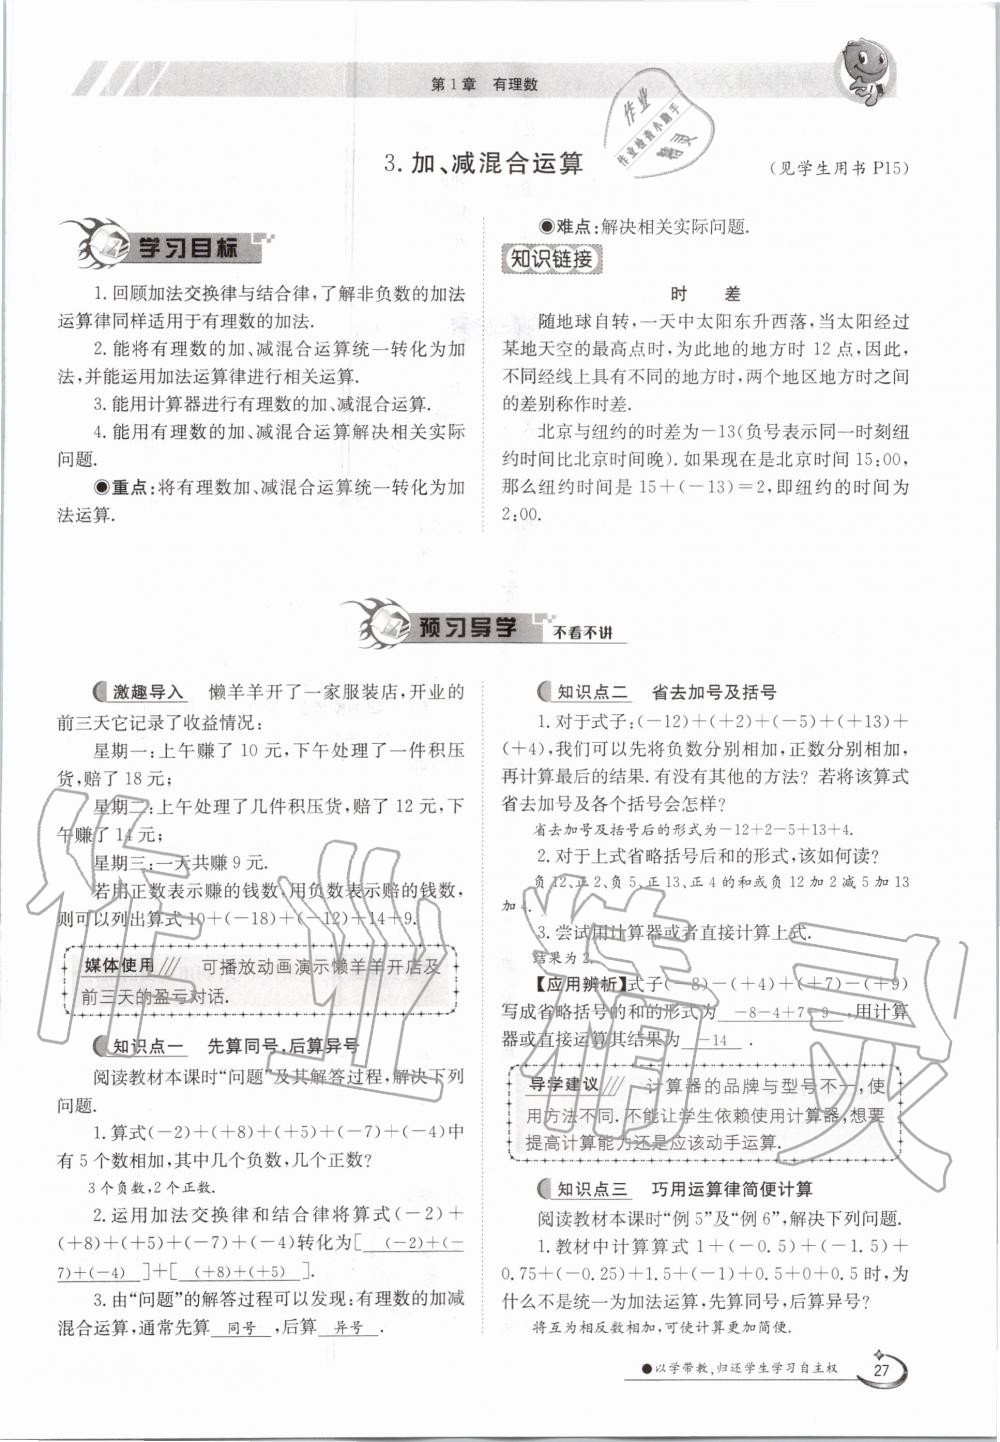 第1章 有理数
作业
作业检查小助手
精灵
3.加、减混合运算
(见学生用书 P15)
学习目标
1.回顾加法交换律与结合律,了解非负数的加法
运算律同样适用于有理数的加法.
2.能将有理数的加、减混合运算统一转化为加
法,并能运用加法运算律进行相关运算.
3.能用计算器进行有理数的加、减混合运算.
4.能用有理数的加、减混合运算解决相关实际
问题.
●重点:将有理数加、减混合运算统一转化为加
法运算.
●难点:解决相关实际问题.
知识链接
时 差
随地球自转,一天中太阳东升西落,当太阳经过
某地天空的最高点时,为此地的地方时 12 点,因此,
不同经线上具有不同的地方时,两个地区地方时之间
的差别称作时差.
北京与纽约的时差为-13(负号表示同一时刻纽
约时间比北京时间晚).如果现在是北京时间 15:00,
那么纽约时间是 15+(-13)=2,即纽约的时间为
2:00.
预习导学 不看不讲
激趣导入 懒羊羊开了一家服装店,开业的
前三天它记录了收益情况:
星期一:上午赚了 10 元,下午处理了一件积压
货,赔了 18 元;
星期二:上午处理了几件积压货,赔了 12 元,下
午赚了 14 元;
星期三:一天共赚 9 元.
若用正数表示赚的钱数,用负数表示赔的钱数,
则可以列出算式 10+(-18)+(-12)+14+9.
媒体使用 可播放动画演示懒羊羊开店及
前三天的盈亏对话.
知识点一 先算同号,后算异号
阅读教材本课时“问题”及其解答过程,解决下列
问题.
1.算式(-2)+(+8)+(+5)+(-7)+(-4)中
有 5 个数相加,其中几个负数,几个正数?
3 个负数,2 个正数.
2.运用加法交换律和结合律将算式(-2)+
(+8)+(+5)+(-7)+(-4)转化为[ (-2)+(-
7)+(-4) ]+[ (+8)+(+5) ].
3.由“问题”的解答过程可以发现:有理数的加减
混合运算,通常先算 同号 ,后算 异号 .
知识点二 省去加号及括号
1.对于式子:(-12)+(+2)+(-5)+(+13)+
(+4),我们可以先将负数分别相加,正数分别相加,
再计算最后的结果.有没有其他的方法? 若将该算式
省去加号及各个括号会怎样?
省去加号及括号后的形式为-12+2-5+13+4.
2.对于上式省略括号后和的形式,该如何读?
负 12、正 2、负 5、正 13、正 4 的和或负 12 加 2 减 5 加 13
加 4.
3.尝试用计算器或者直接计算上式.
结果为 2.
【应用辨析】式子(-8)-(+4)+(+7)-(+9)
写成省略括号的和的形式为 -8-4+7-9 ,用计算
器或直接运算其结果为 -14 .
导学建议 计算器的品牌与型号不一,使
用方法不同.不能让学生依赖使用计算器,想要
提高计算能力还是应该动手运算.
知识点三 巧用运算律简便计算
阅读教材本课时“例 5”及“例 6”,解决下列问题.
1.教材中计算算式 1+(-0.5)+(-1.5)+
0.75+(-0.25)+1.5+(-1)+0.5+0+0.5 时,为
什么不是统一为加法运算,先算同号,后算异号?
将互为相反数相加,可使计算更加简便.
●以学带教,归还学生学习自主权
27
作业精灵